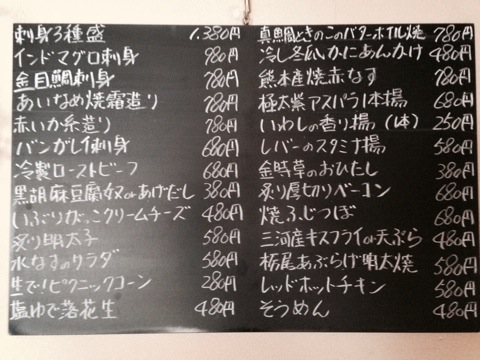 刺身3種盛 1,380円
インドマグロ刺身 980円
金目鯛刺身 780円
あいなめ焼霜造り 780円
赤いか糸造り 780円
バンガレイ刺身 680円
冷製ローストビーフ 680円
黒胡麻豆腐奴orあげだし 380円
いぶりがっこクリームチーズ 480円
炙り明太子 580円
水なすのサラダ 580円
生で!ピクニックコーン 280円
塩ゆで落花生 480円
真鯛ときのこのバターホイル焼 780円
冷し冬瓜かにあんかけ 480円
熊本産焼赤なす 780円
極太紫アスパラ1本揚 680円
いわしの香り揚(1本) 250円
レバーのスタミナ揚 580円
金時草のおひたし 380円
炙り厚切りベーコン 680円
焼ふじつぼ 680円
三河産キスフライor天ぷら 480円
栃尾あぶらげ明太焼 580円
レッドホットチキン 580円
そうめん 480円